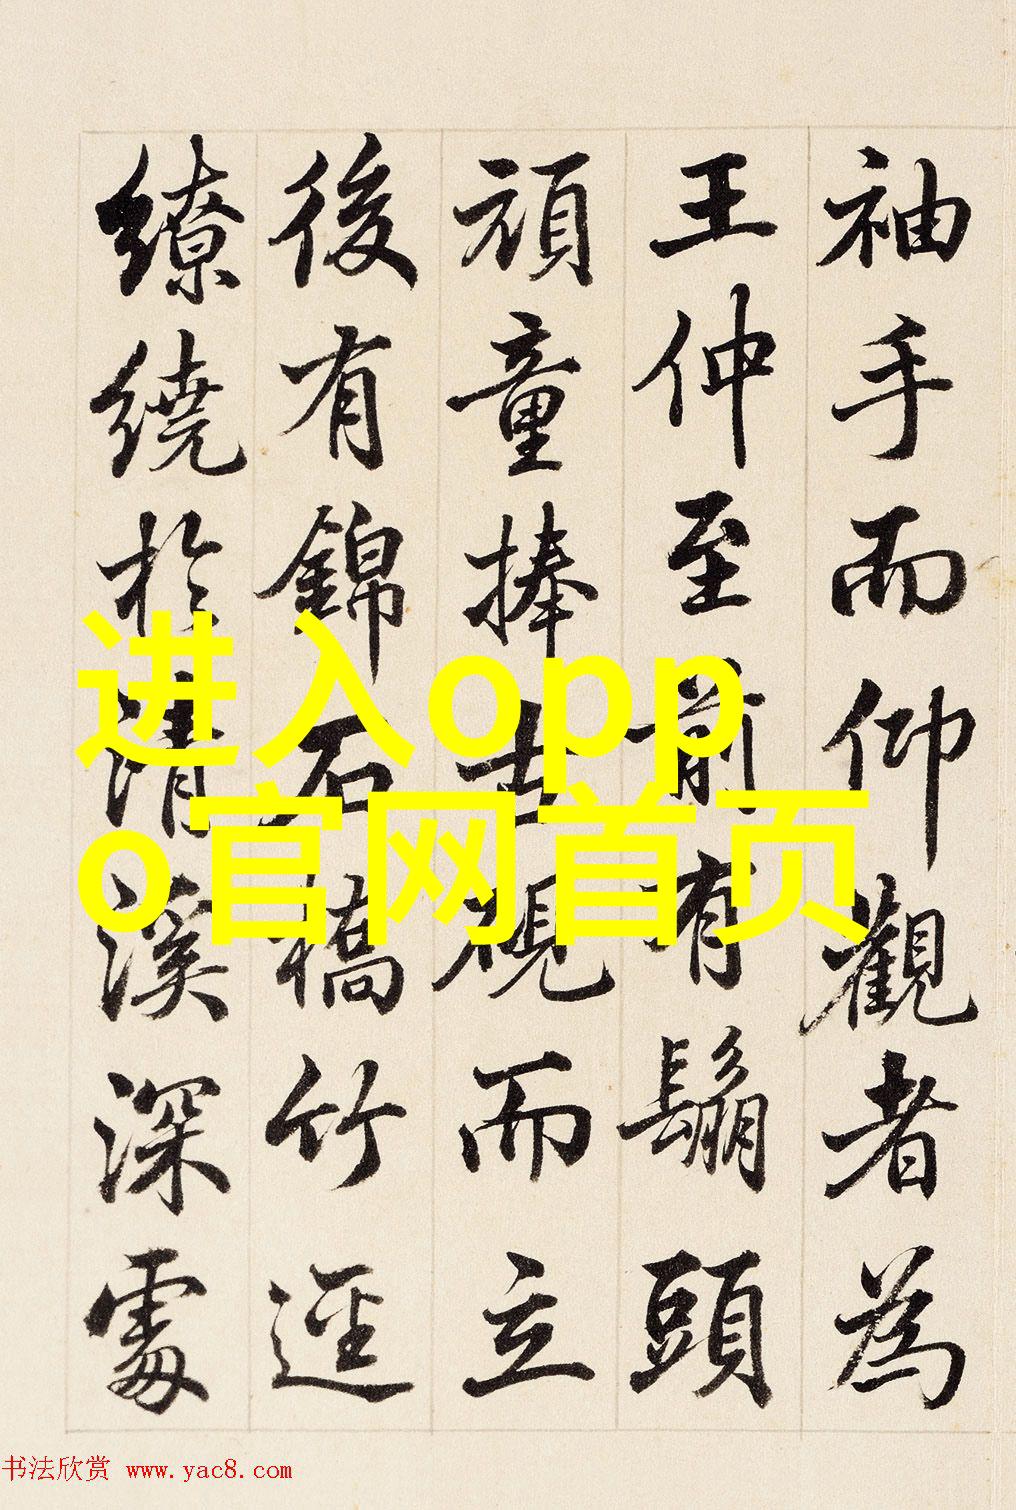 袖手而仰觀者為
王仲至前有鬅頭
頑童捧古硯而立
後有錦石橋竹逕
繚繞於清溪深處
进入opp
o官网首页
书法欣赏 www.yac8.com